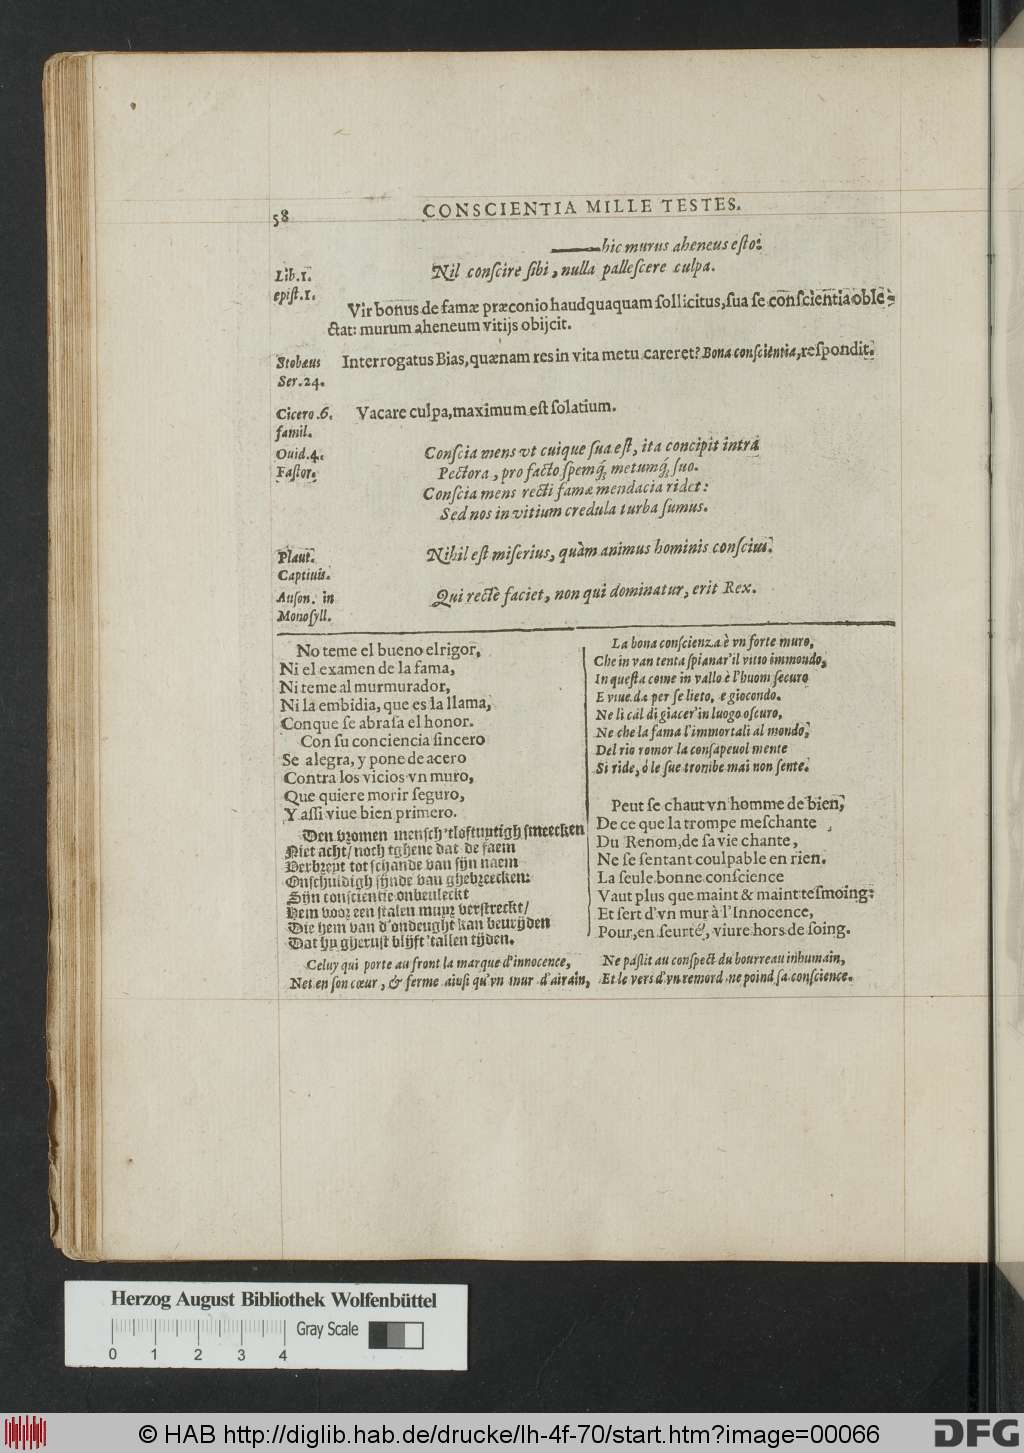 58
CONSCIENTIA MILLE TESTES.
hic murus aheneus eſto:
Lib.1.
epiſt.1.
Nil conſcire ſibi, nulla palleſcere culpa.
Vir bonus de famæ præconio haudquaquam ſollicitus, ſua ſe conſcientia oble-
ctat: murum aheneum vitijs obijcit.
Stobæus
Ser.24.
Interrogatus Bias, quænam res in vita metu careret? Bona conſcientia, reſpondit.
Cicero.6.
famil.
Vacare culpa, maximum eſt ſolatium.
Ouid.4.
Faſtor.
Conſcia mens vt cuique ſua eſt, ita concipit intra
Pectora, pro facto ſpemq́; metumq́; ſuo.
Conſcia mens recti famæ mendacia ridet:
Sed nos in vitium credula turba ſumus.
Plaut.
Captiuis.
Nihil eſt miſerius, quàm animus hominis conſcius.
Auſon. in
Monoſyll.
Qui rectè faciet, non qui dominatur, erit Rex.
No teme el bueno el rigor,
Ni el examen de la fama,
Ni teme al murmurador,
Ni la embidia, que es la llama,
Con que ſe abraſa el honor.
Con ſu conciencia ſincero
Se alegra, y pone de acero
Contra los vicios vn muro,
Que quiere morir ſeguro,
Y aſſi viue bien primero.
Den vromen menſch 'tloftuytigh ſmeecken
Niet acht/ noch tghene dat de faem
Verbreyt tot ſchande van ſijn naem
Onſchuldigh ſijnde van ghebreecken:
Sijn conſcientie onbeuleckt
Hem voor een ſtalen muyr verſtreckt/
Die hem van d'ondeught kan beurijden
Dat hy gheruſt blijft 'tallen tijden.
La bona conſcienza è vn forte muro,
Che in van tenta ſpianar'il vitio immondo,
In queſta come in vallo è l'huom ſecuro
E viue da per ſe lieto, e giocondo.
Ne li cal di giacer'in luogo oſcuro,
Ne che la fama l'immortali al mondo,
Del rio romor la conſapeuol mente
Si ride, ò le ſue trombe mai non ſente.
Peut ſe chaut vn homme de bien,
De ce que la trompe meſchante
Du Renom, de ſa vie chante,
Ne ſe ſentant coulpable en rien.
La ſeule bonne conſcience
Vaut plus que maint & maint teſmoing:
Et ſert d'vn mur à l'Innocence,
Pour, en ſeurté, viure hors de ſoing.
Celuy qui porte au front la marque d'innocence,
Net en ſon cœur, & ferme ainſi qu'vn mur d'airain,
Ne paſlit au conſpect du bourreau inhumain,
Et le vers d'vn remord ne poind ſa conſcience.
Herzog August Bibliothek Wolfenbüttel
Gray Scale
0 1 2 3 4
© HAB http://diglib.hab.de/drucke/lh-4f-70/start.htm?image=00066
DFG